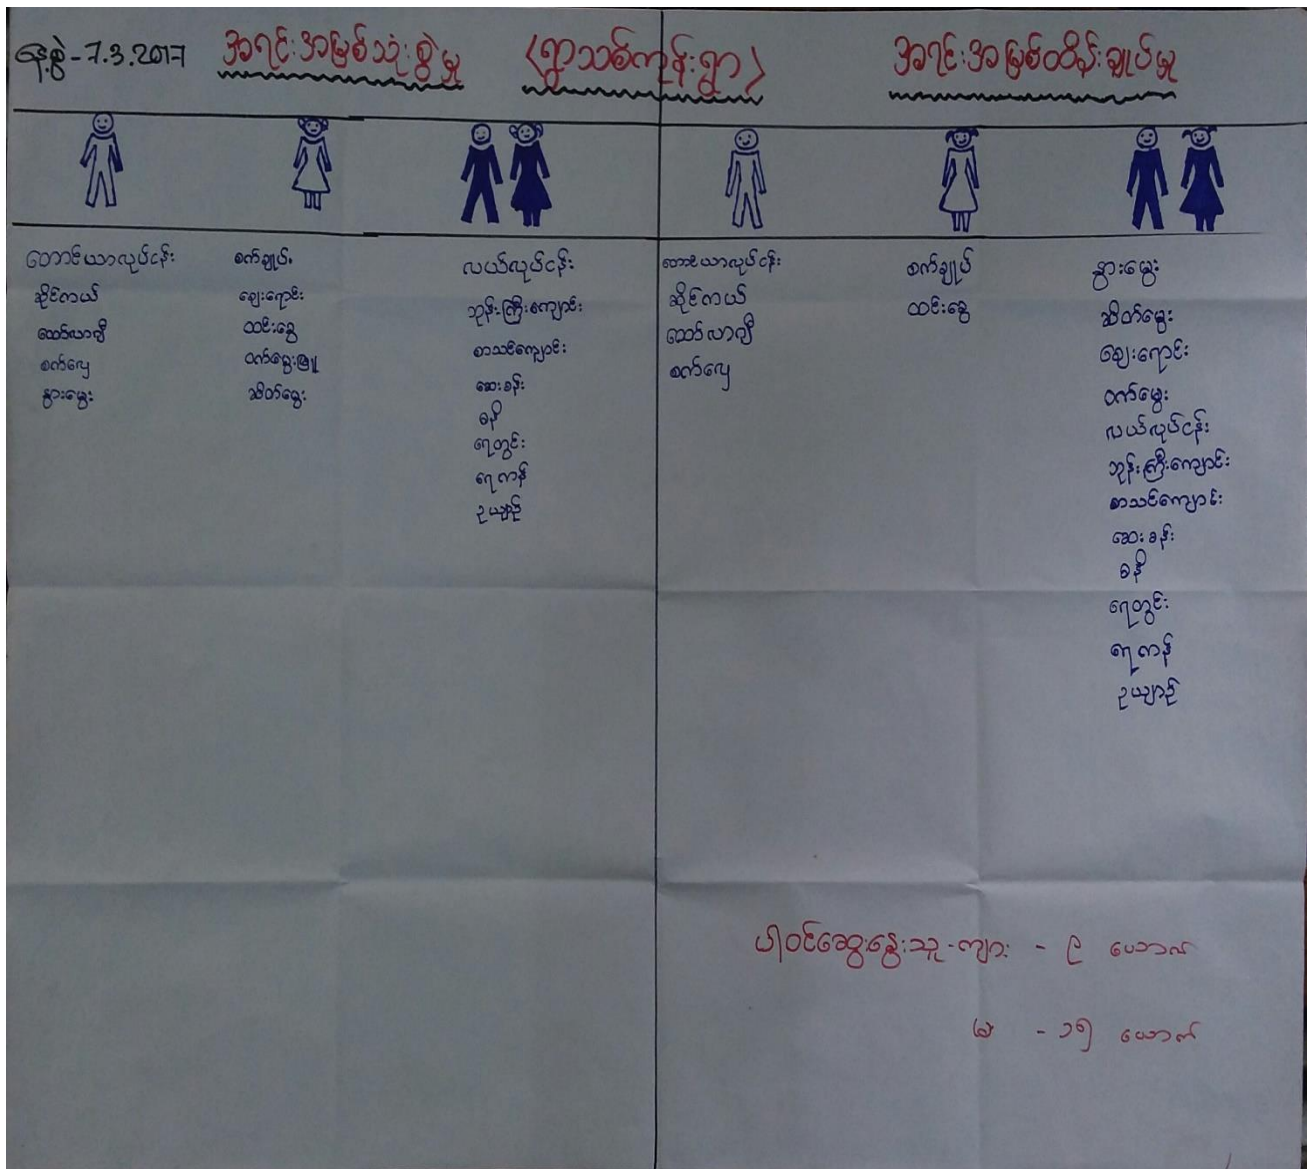 နေ့စွဲ-7.3.2017 အရင်းအမြစ်သုံးစွဲမှု <ရွာသစ်ကုန်းရွာ> အရင်းအမြစ်ထိန်းချုပ်မှု
တောင်ယာလုပ်ငန်း
ဆိုင်ကယ်
ထော်လာဂျီ
စက်လှေ
နွားမွေး
စက်ချုပ်
ဈေးရောင်း
ထင်းခွေ
ဝက်မွေးမြူ
ဆိတ်မွေး
လယ်လုပ်ငန်း
ဘုန်းကြီးကျောင်း
စာသင်ကျောင်း
ဆေးခန်း
ဓနိ
ရေတွင်း
ရေကန်
ဥယျာဉ်
တောင်ယာလုပ်ငန်း
ဆိုင်ကယ်
ထော်လာဂျီ
စက်လှေ
စက်ချုပ်
ထင်းခွေ
နွားမွေး
ဆိတ်မွေး
ဈေးရောင်း
ဝက်မွေး
လယ်လုပ်ငန်း
ဘုန်းကြီးကျောင်း
စာသင်ကျောင်း
ဆေးခန်း
ဓနိ
ရေတွင်း
ရေကန်
ဥယျာဉ်
ပါဝင်ဆွေးနွေးသူ-ကျား - ၉ ယောက်
မ - ၁၅ ယောက်